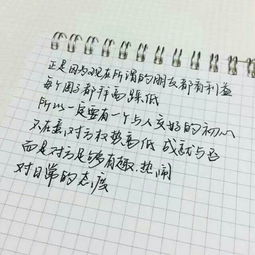 正是因为现在所谓的朋友都有利益
每个圈子都拜高踩低
所以一定要有一个与人交好的初心
不在意对方权势高低 成就与否
而是对方是够有趣.热闹
对日常的态度